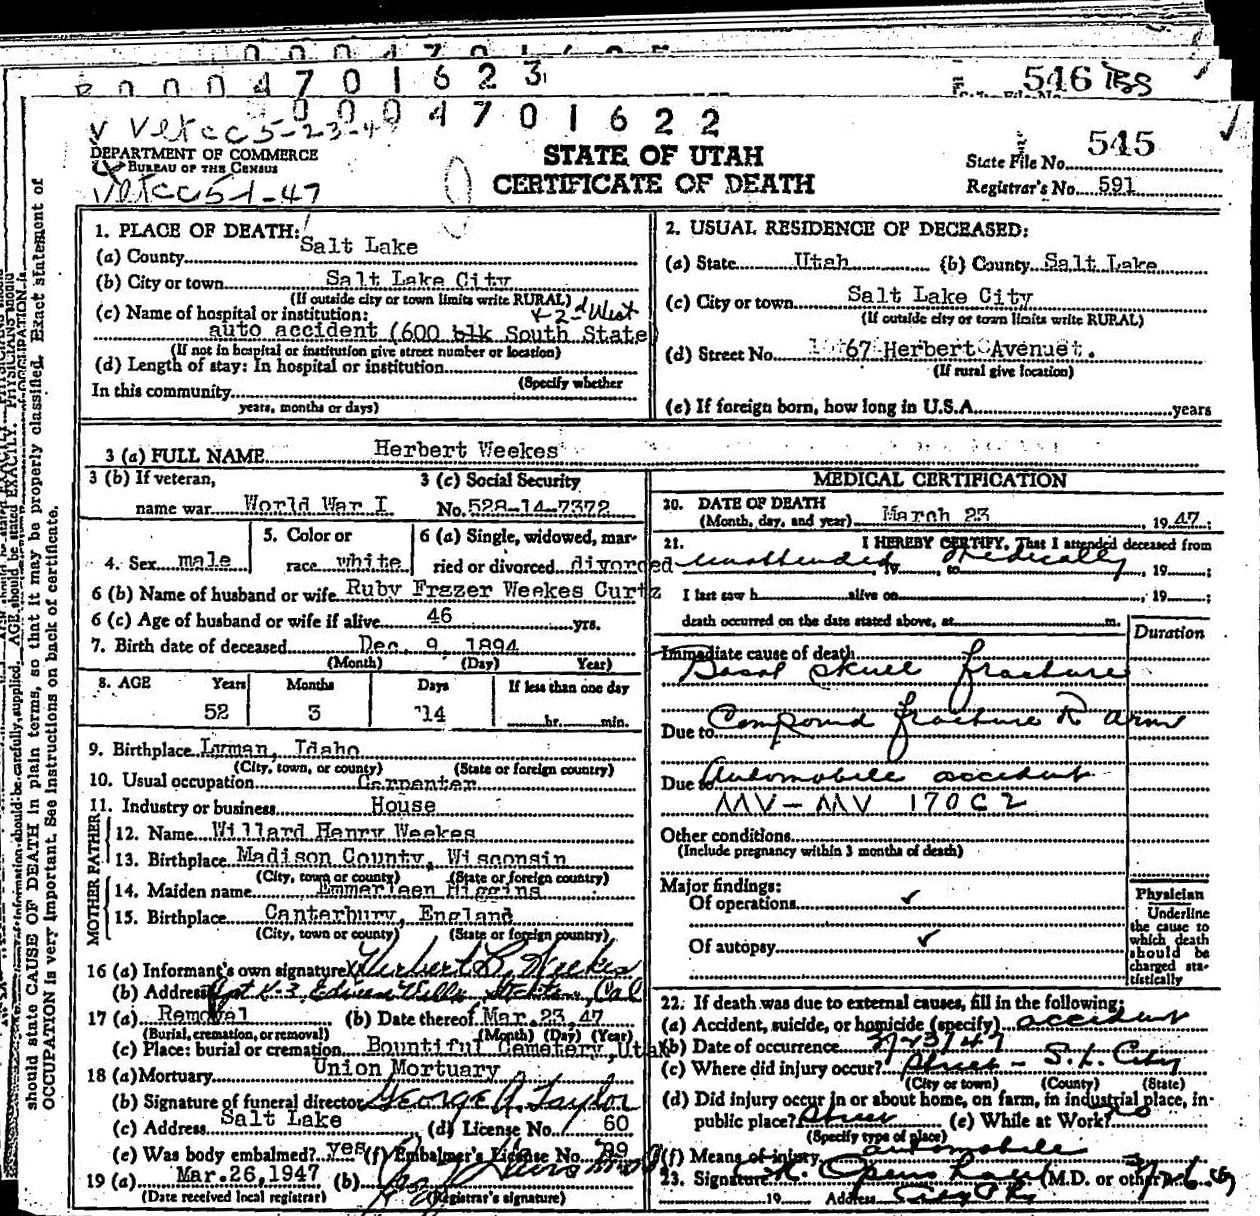 0004701623
546
0004701622
DEPARTMENT OF COMMERCE
BUREAU OF THE CENSUS
STATE OF UTAH
CERTIFICATE OF DEATH
State File No. 545
Registrar's No. 591
1. PLACE OF DEATH:
(a) County Salt Lake
(b) City or town Salt Lake City
(If outside city or town limits write RURAL)
(c) Name of hospital or institution: & 2nd West
auto accident (600 blk South State)
(If not in hospital or institution give street number or location)
(d) Length of stay: In hospital or institution
(Specify whether
In this community
years, months or days)
2. USUAL RESIDENCE OF DECEASED:
(a) State Utah (b) County Salt Lake
(c) City or town Salt Lake City
(If outside city or town limits write RURAL)
(d) Street No. 67 Herbert Avenue
(If rural give location)
(e) If foreign born, how long in U.S.A. years
3 (a) FULL NAME Herbert Weekes
3 (b) If veteran,
name war World War I
3 (c) Social Security
No. 528-14-7372
4. Sex male
5. Color or
race white
6 (a) Single, widowed, mar-
ried or divorced divorced
6 (b) Name of husband or wife Ruby Frazer Weekes Curtz
6 (c) Age of husband or wife if alive 46 yrs.
7. Birth date of deceased Dec. 9, 1894
(Month) (Day) Year)
8. AGE Years Months Days If less than one day
52 3 14 hr. min.
9. Birthplace Lyman, Idaho
(City, town, or county) (State or foreign country)
10. Usual occupation Carpenter
11. Industry or business House
FATHER
12. Name Willard Henry Weekes
13. Birthplace Madison County, Wisconsin
(City, town or county) (State or foreign country)
MOTHER
14. Maiden name Emmerleen Higgins
15. Birthplace Canterbury, England
(City, town or county) (State or foreign country)
16 (a) Informant's own signature Herbert L. Weekes
(b) Address Stockton, Cal
17 (a) Removal (b) Date thereof Mar. 23, 47
(Burial, cremation, or removal) (Month) (Day) (Year)
(c) Place: burial or cremation Bountiful Cemetery, Utah
18 (a) Mortuary Union Mortuary
(b) Signature of funeral director George A. Taylor
(c) Address Salt Lake (d) License No. 60
(e) Was body embalmed? yes (f) Embalmer's License No. 89
19 (a) Mar. 26, 1947 (b)
(Date received local registrar) (Registrar's signature)
MEDICAL CERTIFICATION
20. DATE OF DEATH
(Month, day, and year) March 23, 1947;
21. I HEREBY CERTIFY, That I attended deceased from
unattended, to medically, 19 ;
I last saw h alive on , 19 ;
death occurred on the date stated above, at m.
Duration
Immediate cause of death
Basal skull fracture
Due to Compound fracture R arm
Due to Automobile accident
MV-MV 170C2
Other conditions
(Include pregnancy within 3 months of death)
Major findings:
Of operations ✓
Of autopsy ✓
Physician
Underline
the cause to
which death
should be
charged sta-
tistically
22. If death was due to external causes, fill in the following:
(a) Accident, suicide, or homicide (specify) accident
(b) Date of occurrence 3/23/47
(c) Where did injury occur? Street - S. L. City
(City or town) (County) (State)
(d) Did injury occur in or about home, on farm, in industrial place, in
public place? Street (e) While at Work? no
(Specify type of place)
(f) Means of injury automobile
23. Signature (M.D. or other)
19 Address
should state CAUSE OF DEATH in plain terms, so that it may be properly classified. Exact statement of
OCCUPATION is very important. See instructions on back of certificate.